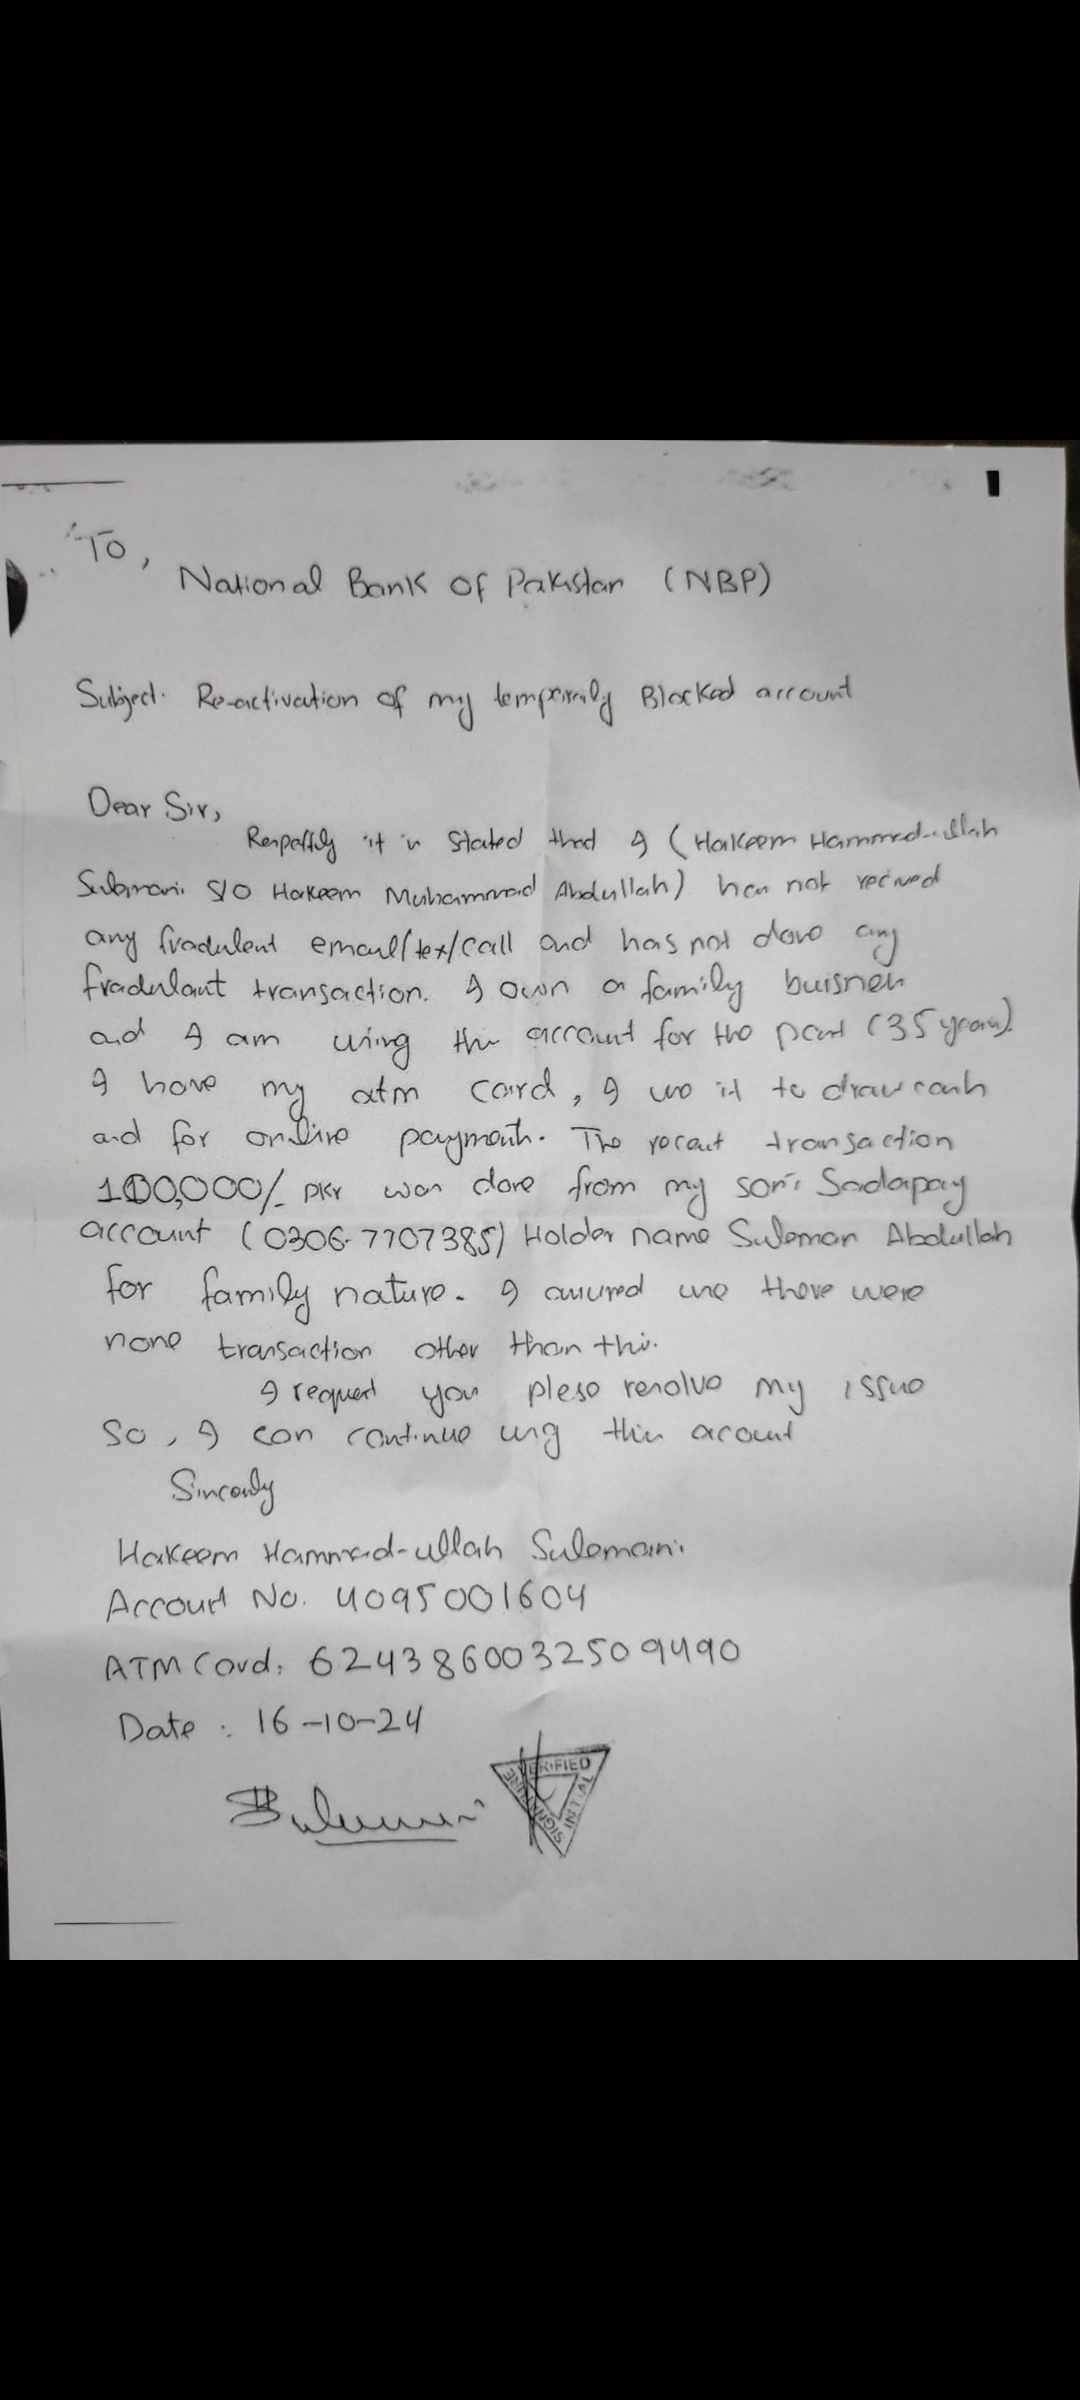 To,
National Bank of Pakistan (NBP)
Subject. Re-activation of my temporarily Blocked account
Dear Sir,
Respectfully it is stated that I (Hakeem Hammad-ullah
Sulemani S/O Hakeem Muhammad Abdullah) has not recived
any fradulent email/tex/call and has not done any
fradulant transaction. I own a family buisness
and I am using this account for the past (35 years).
I have my atm card, I use it to draw cash
and for online payments. The recent transaction
100,000/- PKR was done from my son's Sadapay
account (0306-7707385) Holder name Suleman Abdullah
for family nature. I assured there were
none transaction other than this.
I request you plese resolve my issue
So, I can continue using this acount
Sincerly
Hakeem Hammad-ullah Sulemani
Account No. 4095001604
ATM Card: 6243860032509490
Date : 16-10-24
Sulemani
SIGNATURE VERIFIED